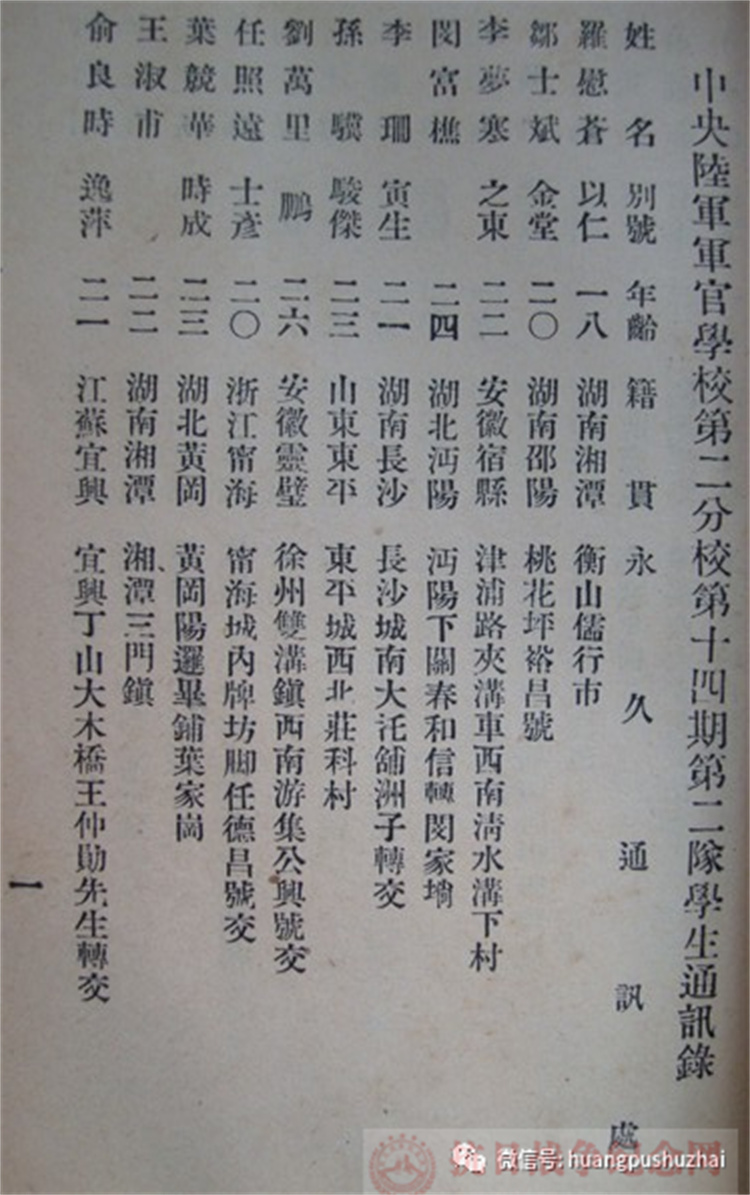 中央陸軍軍官學校第二分校第十四期第二隊學生通訊錄
姓名 別號 年齡 籍貫 永久通訊處
羅慰蒼 以仁 一八 湖南湘潭 衡山儒行市
鄒士斌 金堂 二〇 湖南邵陽 桃花坪裕昌號
李夢寒 之東 二二 安徽宿縣 津浦路夾溝車西南淸水溝下村
閔富樵 二四 湖北沔陽 沔陽下關春和信轉閔家墒
李珊 寅生 二一 湖南長沙 長沙城南大托舖洲子轉交
孫驥 駿傑 二三 山東東平 東平城西北莊科村
劉萬里 鵬 二六 安徽靈璧 徐州雙溝鎮西南游集公興號交
任照遠 士彥 二〇 浙江甯海 甯海城內牌坊脚任德昌號交
葉競華 時成 二三 湖北黃岡 黃岡陽邏畢鋪葉家崗
王淑甫 二二 湖南湘潭 湘潭三門鎮
俞良時 逸萍 二一 江蘇宜興 宜興丁山大木橋王仲勛先生轉交
一
抗日战争纪念网
微信号: huangpushuzhai